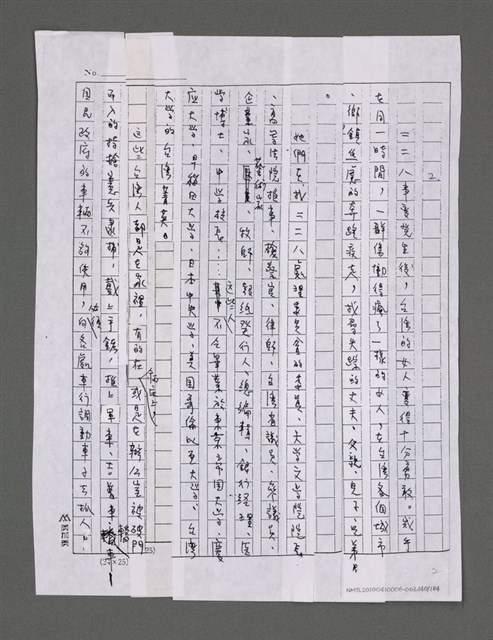 No.
2.
二二八事變發生後，台灣的女人變得十分勇敢。幾乎
在同一時間，一群傷慟得瘋了一樣的女人，在台灣各個城市
、鄉鎮無處的奔跑，找尋失蹤的丈夫、父親、兒子、兄弟
。
她們在找二二八處理委員會的委員、大學文學院院長
、高等法院推事、檢察官、律師、台灣省議員、參議員、
企業家、藝術家、牧師、報紙發行人、總編輯、銀行經理、醫
學博士、中學校長……這些人不全畢業於東京帝國大學、慶
應大學、早稻田大學、日本中央大學、美國哥倫比亞大學、台灣
大學的台灣菁英。
這些台灣人都是在家裡，有的在病床上，或是在辦公室被破門
而入的持槍憲兵逮捕，戴上手銬，推上軍車、吉普車、轎車
國民政府的車輛不夠使用，向交通車行調動車子去抓人
(24×25)
KEEK
2
NMTL20190410006